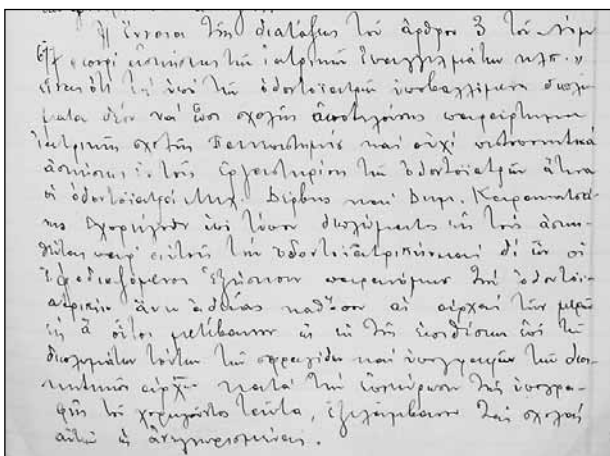 Ἡ ἔννοια τῆς διατάξεως τοῦ ἄρθρου 3 τοῦ Νόμου
ἀσκήσεως τῶν ἰατρικῶν ἐπαγγελμάτων κλπ.»
εἶναι ὅτι τὰ ὑπὸ τῶν ὀδοντοϊάτρων ὑποβαλλόμενα διπλώ
ματα δέον νὰ ὦσι σχολῆς ἀποτελούσης παράρτημα
ἰατρικῆς σχολῆς Πανεπιστημίου καὶ οὐχὶ πιστοποιητικὰ
ἀσκήσεως τοῖς ἐργαστηρίοις τῶν ὀδοντοϊάτρων ἅτινα
οἱ ὀδοντοϊατροὶ Μιχ. καὶ Δημ.
ὑπὸ τύπον διπλώματος εἰς τοὺς ἀσκη
θέντας παρ' αὐτοῖς τὴν ὀδοντοϊατρικὴν καὶ δι' ὧν οἱ
ἐφοδιαζόμενοι ἐξήσκουν παρανόμως τὴν ὀδοντοϊ-
ατρικὴν ἄνευ ἀδείας καθόσον αἱ ἀρχαὶ τῶν μερῶν
εἰς ἃ οὗτοι μετέβαινον ἐκ τῆς ἐπιθέσεως ἐπὶ τῶν
διπλωμάτων τούτων τῶν σφραγίδων καὶ ὑπογραφῶν τῶν διοι-
κητικῶν ἀρχῶν κατὰ τὴν ἐπικύρωσιν τῆς ὑπογρα-
φῆς τοῦ χορηγοῦντος ταῦτα, ἐξελάμβανον τὰς σχολὰς
αὐτῶν ὡς ἀνεγνωρισμένας.